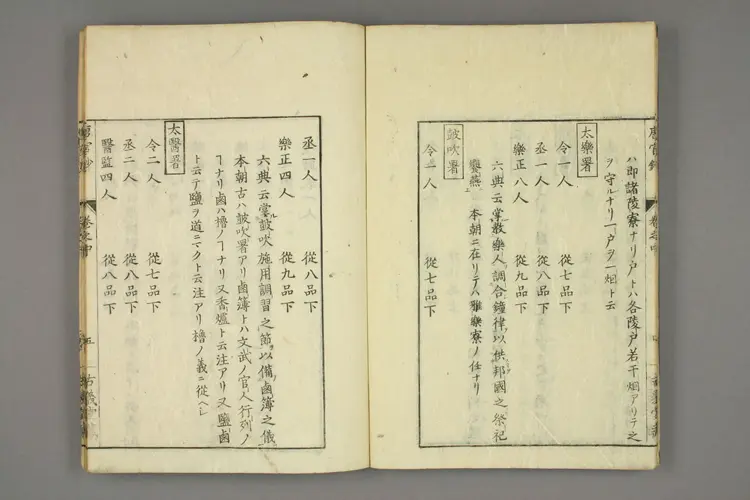 ハ即諸陵寮ナリ戸トハ各陵戸若干烟アリテ之
ヲ守ルナリ一戸ヲ一烟ト云
太樂署
令一人 從七品下
丞一人 從八品下
樂正八人 從九品下
六典云掌敎樂人調合鐘律以供邦國之祭祀
饗燕 本朝ニ在リテハ雅樂寮ノ任ナリ
鼓吹署
令一人 從七品下
丞一人 從八品下
樂正四人 從九品下
六典云掌鼓吹施用調習之節以備鹵簿之儀
本朝古ハ鼓吹署アリ鹵簿トハ文武ノ官人行列ノ
ヿナリ鹵ハ櫓ノヿナリ又香爐ト云注アリ又鹽鹵
ト云テ鹽ヲ道ニマクト云注アリ櫓ノ義ニ從ヘシ
太醫署
令二人 從七品下
丞二人 從八品下
醫監四人 從八品下
卷之中